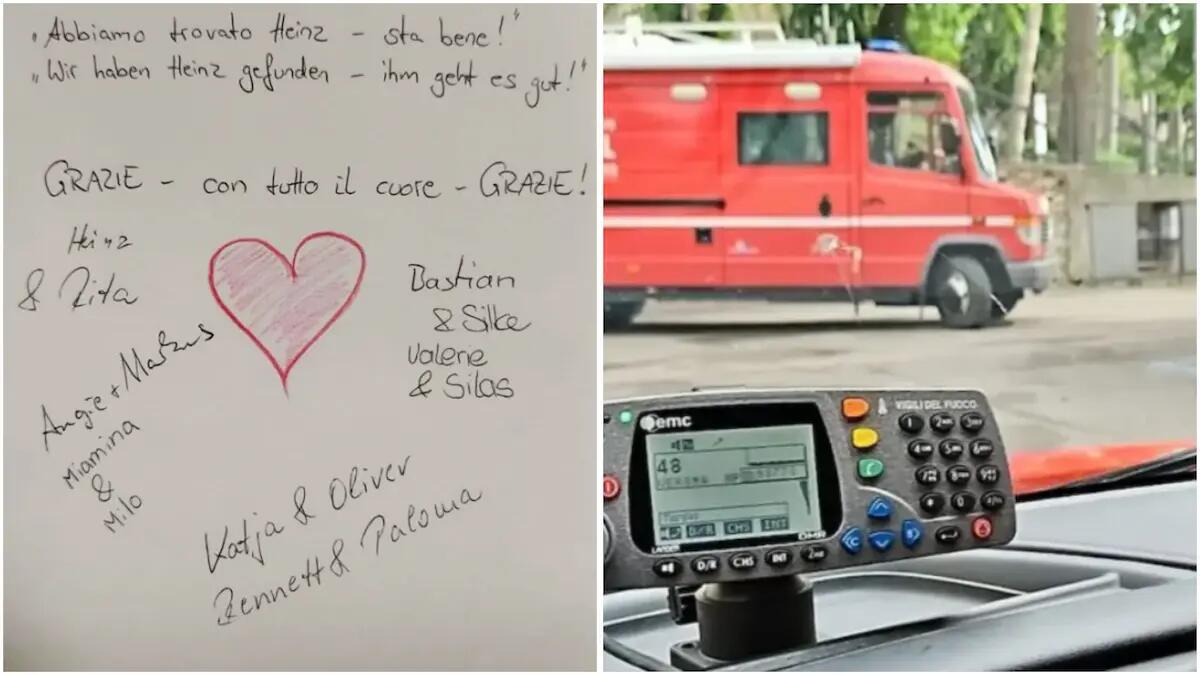 „Abbiamo trovato Heinz – sta bene!"
„Wir haben Heinz gefunden – ihm geht es gut!"
GRAZIE – con tutto il cuore – GRAZIE!
Heinz
& Rita
Bastian
& Silke
Valerie
& Silas
Angie + Markus
Miamina
&
Milo
Katja & Oliver
Bennett & Paloma
emc
VIGILI DEL FUOCO
48
D/R CHS INT
DMR
D/R CHS INT